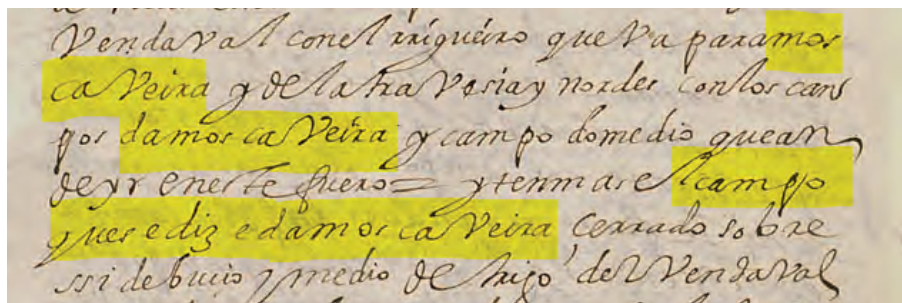 VendaVal conel rrigueiro que Va paramos
caVeira y de la traVesia y nordes con los cam
pos damos caVeira y campo domedio quean
de yr eneste fuero = ytenmas el campo
ques ediz edamos caVeira cerrado sobre
ssi de bucio y medio de trigo del VendaVal